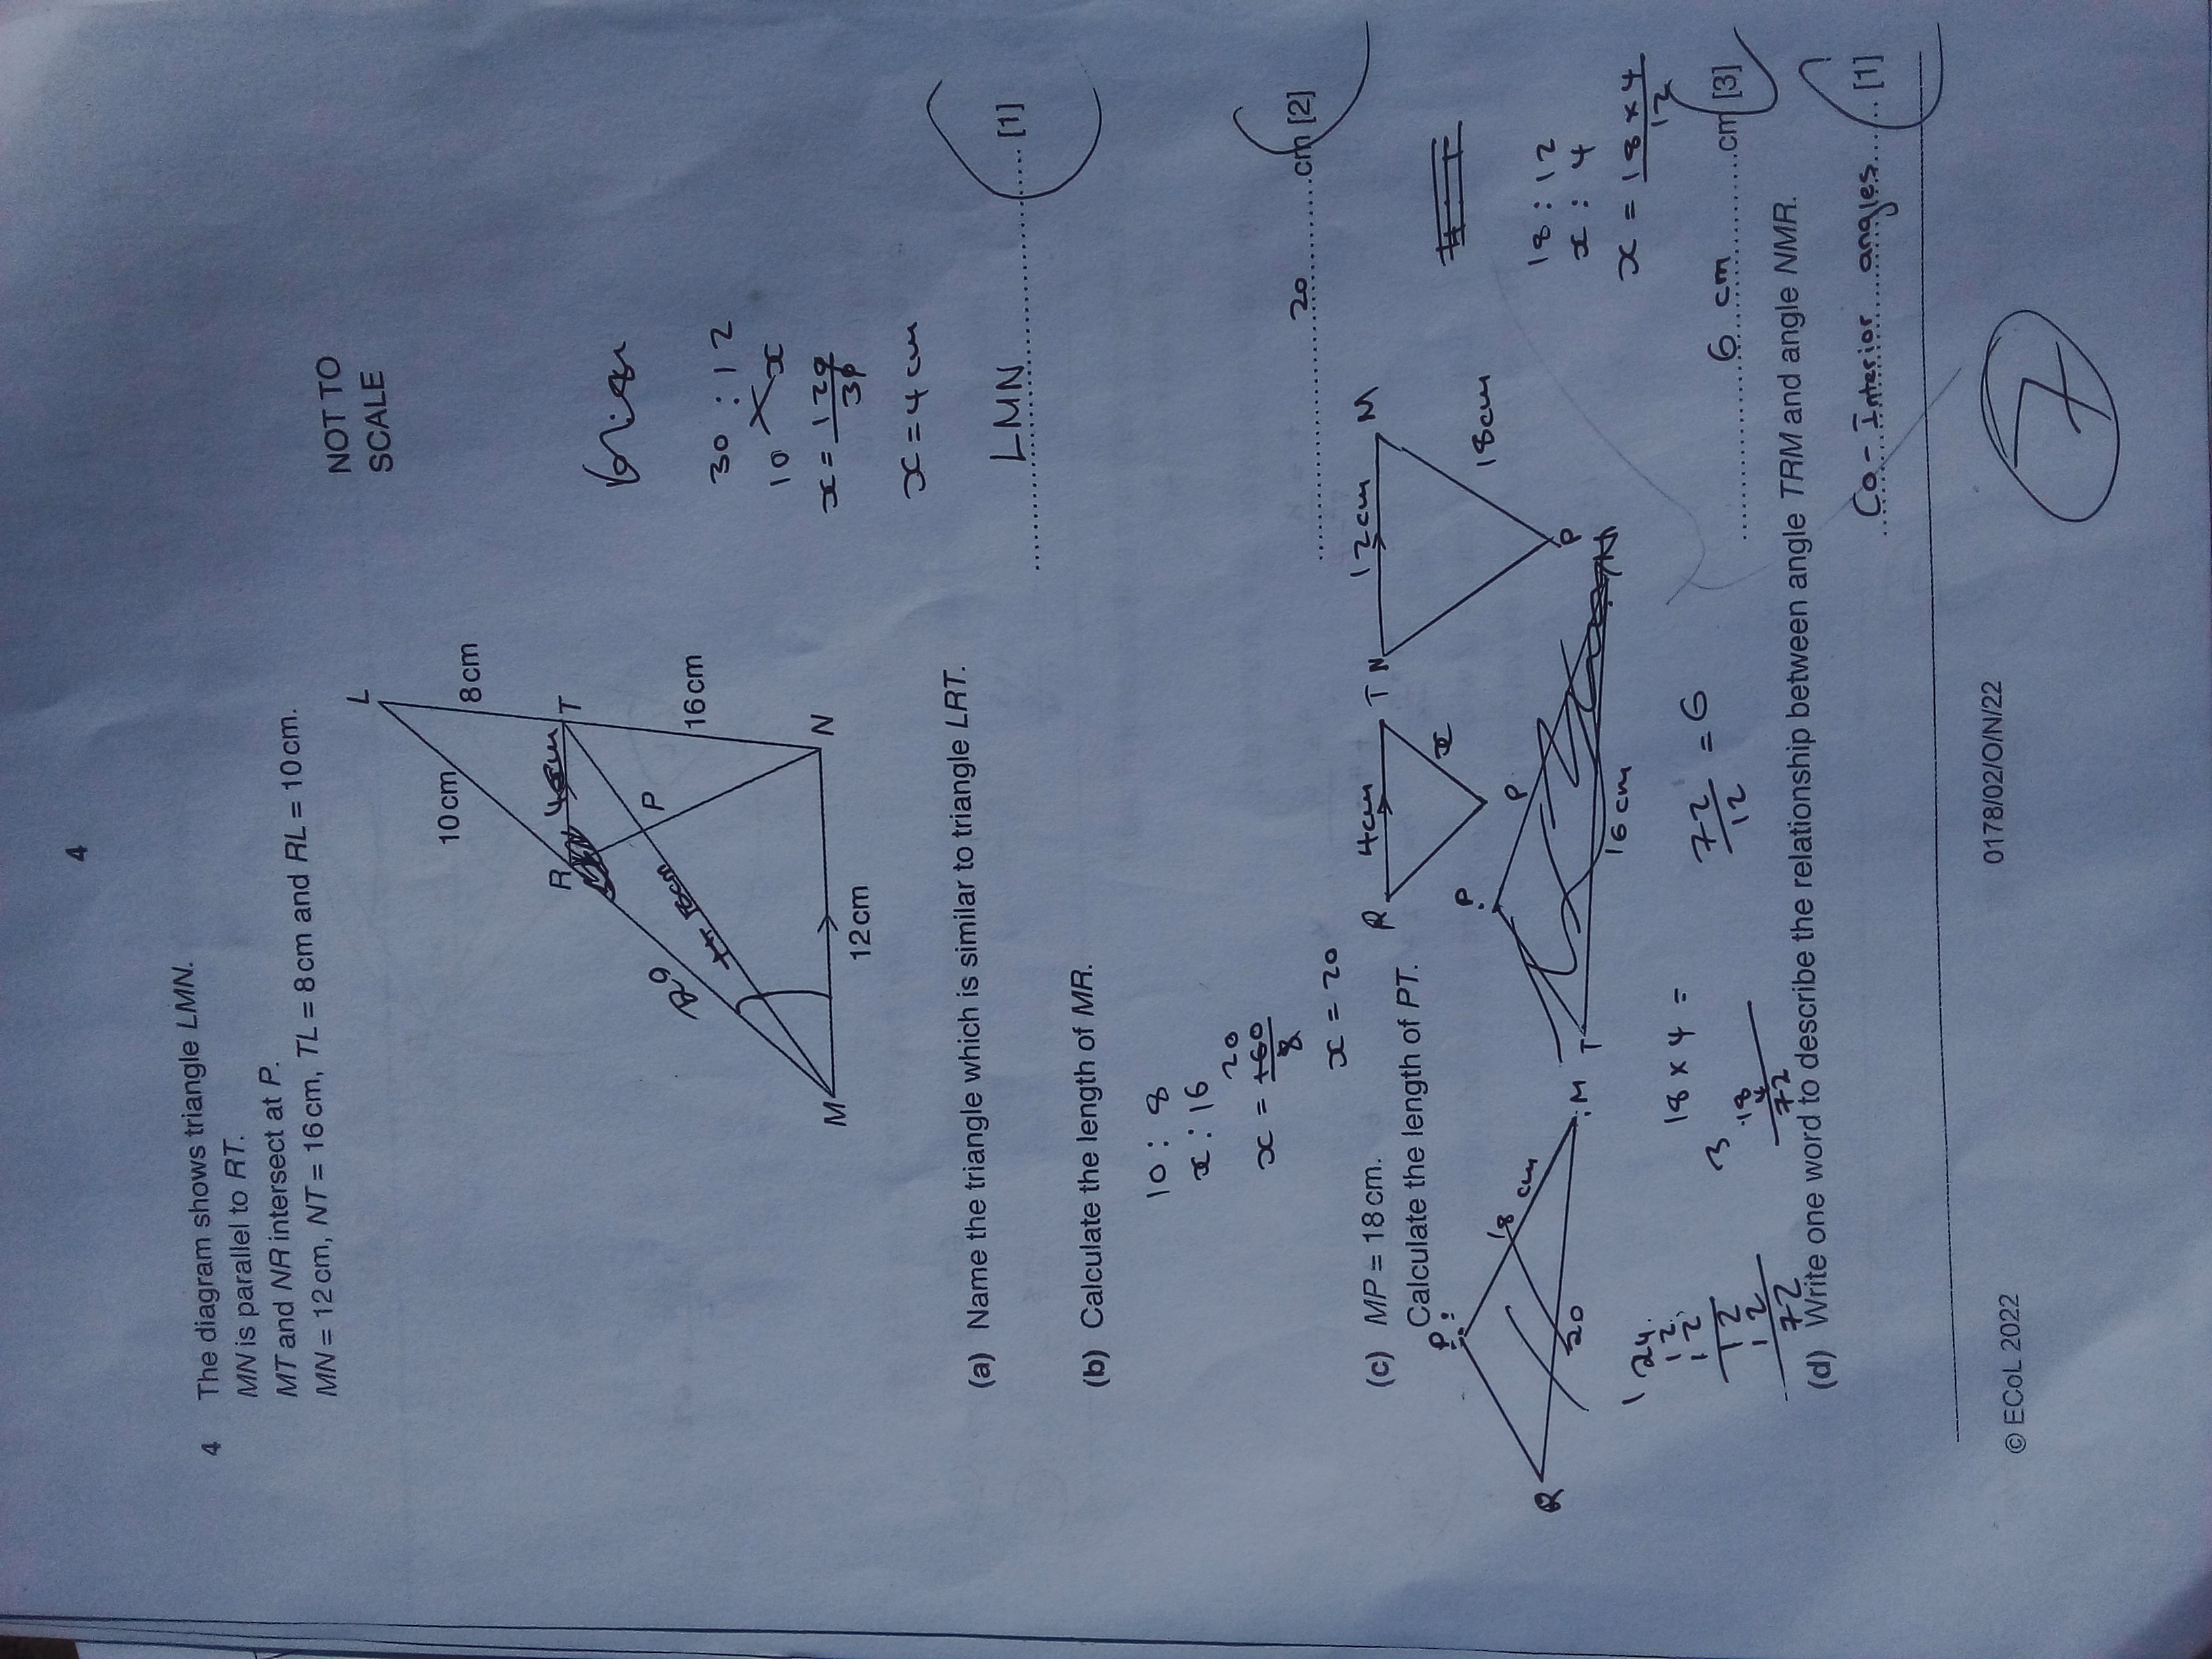 4
4 The diagram shows triangle LMN.
MN is parallel to RT.
MT and NR intersect at P.
MN = 12 cm, NT = 16 cm, TL = 8 cm and RL = 10 cm.
NOT TO
SCALE
L
10 cm
8 cm
R
4cm
T
P
20
18cm
16 cm
M
N
12 cm
30 : 12
10 x
x = 120
30
x = 4 cm
(a) Name the triangle which is similar to triangle LRT.
LMN [1]
(b) Calculate the length of MR.
10 : 8
x : 16
20
x = 160
8
x = 20
20 cm [2]
(c) MP = 18 cm.
Calculate the length of PT.
R 4cm T
x
P
N 12cm M
18cm
P
P
18 cm
R
20
M
P
T
16 cm
N
18 : 12
x : 4
x = 18 x 4
12
1 24.
12
12
12
12
72
18 x 4 =
3
18
4
72
72 = 6
12
6 cm cm [3]
(d) Write one word to describe the relationship between angle TRM and angle NMR.
Co-Interior angles [1]
© ECoL 2022
0178/02/O/N/22
7